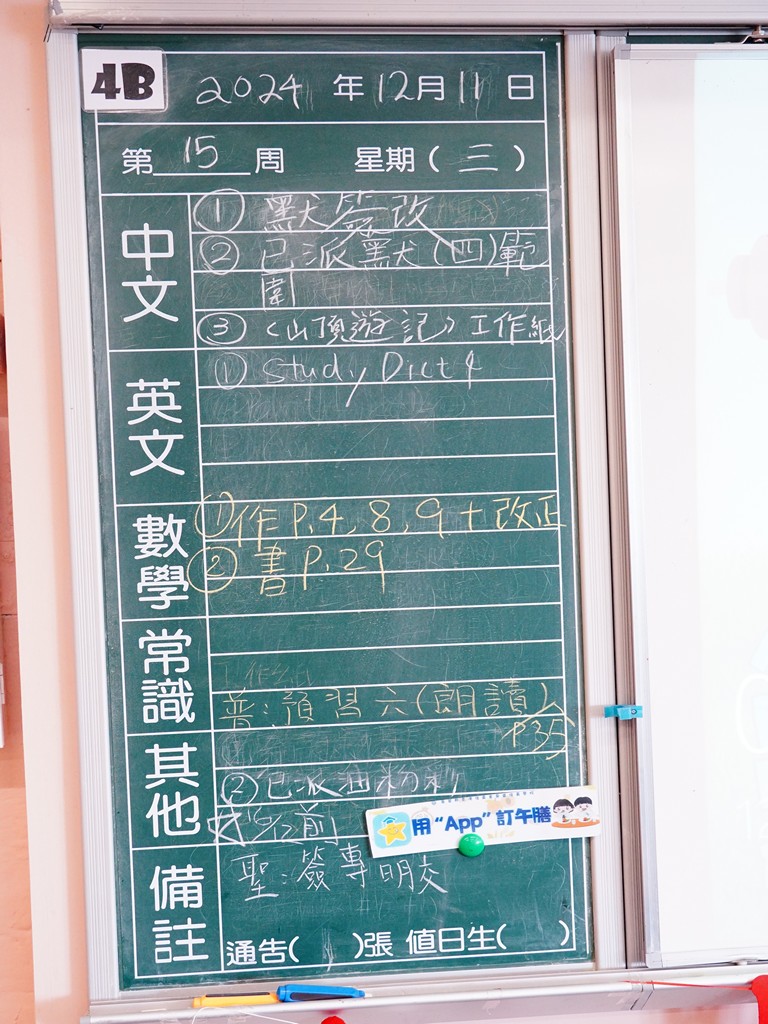 4B
2024 年 12月 11 日
第 15 周 星期(三)
中文
① 默簽改
② 已派默(四)範
圍
③ 〈山頂遊記〉工作紙
英文
① Study Dict 4
數學
① 作 P.4, 8, 9 + 改正
② 書 P.29
常識
工作紙
普:預習六(朗讀)
P35
其他
② 已派油粉彩
前
用“App”訂午膳
備註
聖:簽專明交
通告( )張 值日生( )